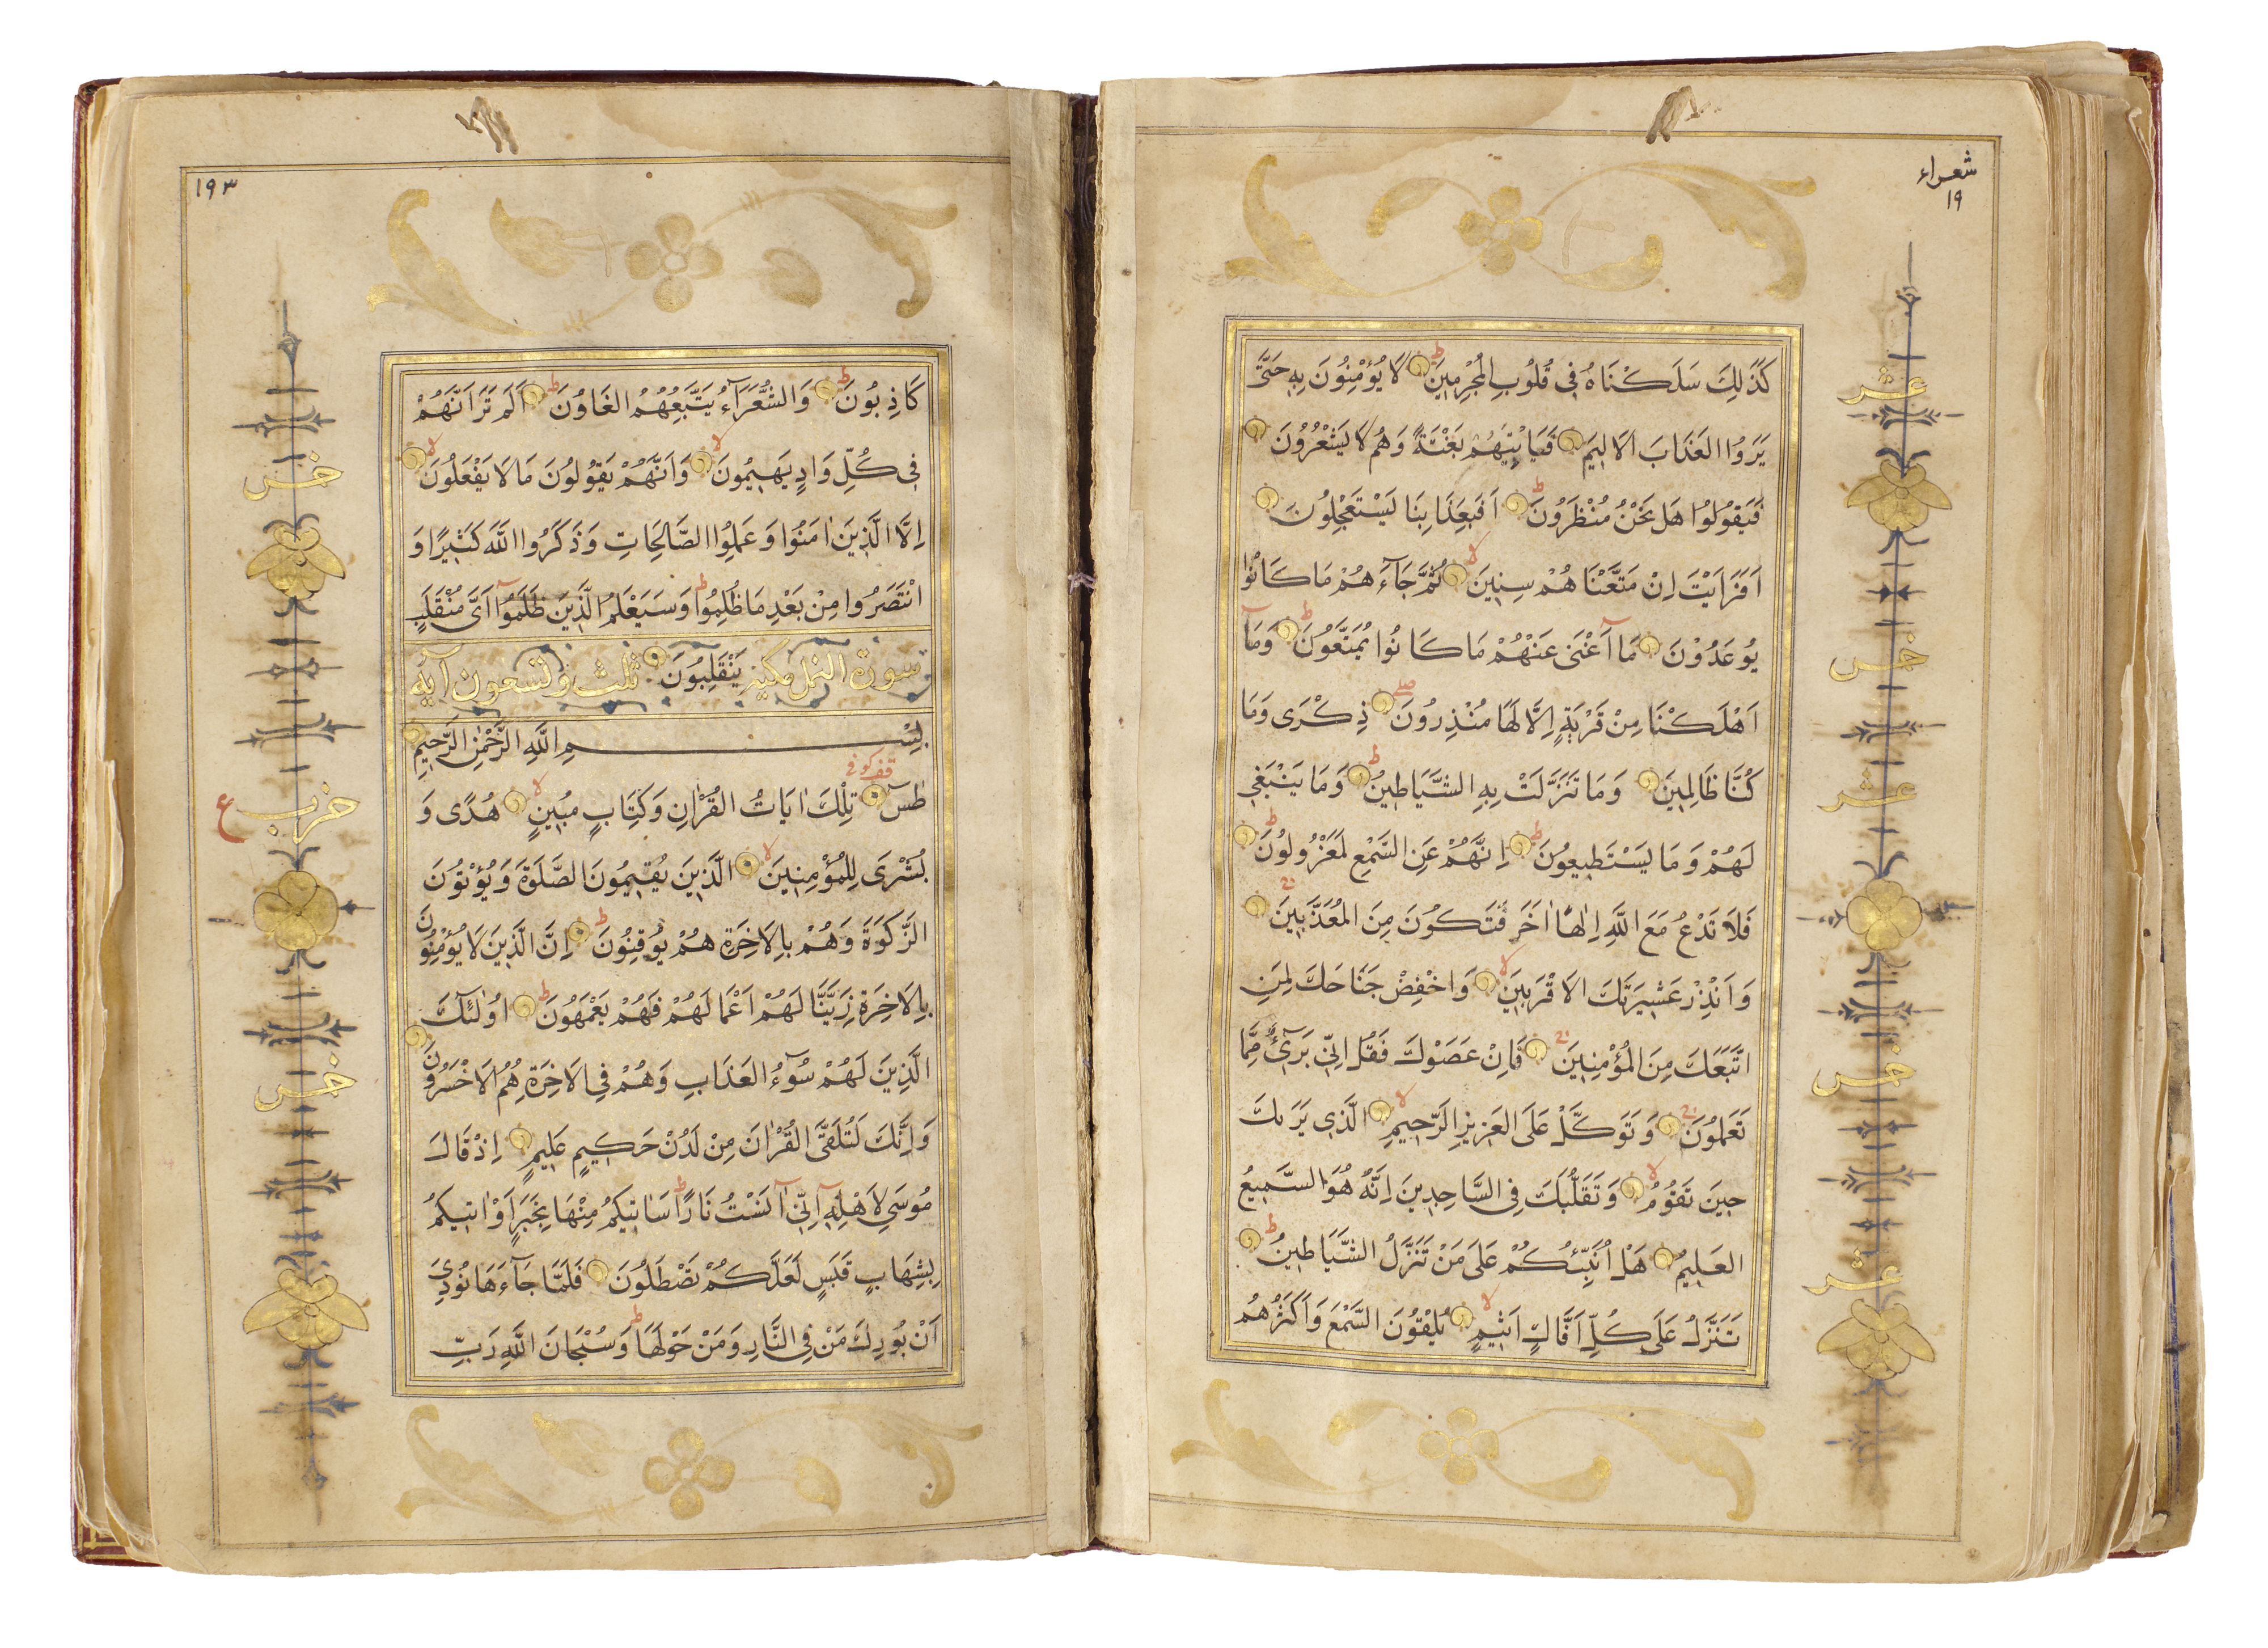 شعراء
١٩
كَذٰلِكَ سَلَكْنَاهُ فِي قُلُوبِ الْمُجْرِمِينَ ط لَا يُؤْمِنُونَ بِهِ حَتَّى
يَرَوُا الْعَذَابَ الْاَلِيمَ فَيَاْتِيَهُمْ بَغْتَةً وَهُمْ لَا يَشْعُرُونَ
فَيَقُولُوا هَلْ نَحْنُ مُنْظَرُونَ ط اَفَبِعَذَابِنَا يَسْتَعْجِلُونَ
اَفَرَاَيْتَ اِنْ مَتَّعْنَاهُمْ سِنِينَ لا ثُمَّ جَآءَهُمْ مَا كَانُوا
يُوعَدُوْنَ مَآ اَغْنَى عَنْهُمْ مَا كَانُوا يُمَتَّعُونَ ط وَمَآ
اَهْلَكْنَا مِنْ قَرْيَةٍ اِلَّا لَهَا مُنْذِرُونَ صلے ذِكْرَى وَمَا
كُنَّا ظَالِمِينَ وَمَا تَنَزَّلَتْ بِهِ الشَّيَاطِينُ ط وَمَا يَنْبَغِي
لَهُمْ وَمَا يَسْتَطِيعُونَ ط اِنَّهُمْ عَنِ السَّمْعِ لَمَعْزُولُونَ ط
فَلَا تَدْعُ مَعَ اللّٰهِ اِلٰهًا اٰخَرَ فَتَكُونَ مِنَ الْمُعَذَّبِينَ
وَاَنْذِرْ عَشِيرَتَكَ الْاَقْرَبِينَ لا وَاخْفِضْ جَنَاحَكَ لِمَنِ
اتَّبَعَكَ مِنَ الْمُؤْمِنِينَ فَاِنْ عَصَوْكَ فَقُلْ اِنِّي بَرِيٓءٌ مِمَّا
تَعْمَلُونَ وَتَوَكَّلْ عَلَى الْعَزِيزِ الرَّحِيمِ لا الَّذِي يَرَىكَ
حِينَ تَقُومُ لا وَتَقَلُّبَكَ فِي السَّاجِدِينَ اِنَّهُ هُوَ السَّمِيعُ
الْعَلِيمُ هَلْ اُنَبِّئُكُمْ عَلَى مَنْ تَنَزَّلُ الشَّيَاطِينُ ط
تَنَزَّلُ عَلَى كُلِّ اَفَّاكٍ اَثِيمٍ لا يُلْقُونَ السَّمْعَ وَاَكْثَرُهُمْ
عشر
خمس
عشر
خمس
عشر
١٩٣
كَاذِبُونَ ط وَالشُّعَرَآءُ يَتَّبِعُهُمُ الْغَاوُنَ ط اَلَمْ تَرَ اَنَّهُمْ
فِي كُلِّ وَادٍ يَهِيمُونَ لا وَاَنَّهُمْ يَقُولُونَ مَا لَا يَفْعَلُونَ لا
اِلَّا الَّذِينَ اٰمَنُوا وَعَمِلُوا الصَّالِحَاتِ وَذَكَرُوا اللّٰهَ كَثِيرًا وَ
انْتَصَرُوا مِنْ بَعْدِ مَا ظُلِمُوا ط وَسَيَعْلَمُ الَّذِينَ ظَلَمُوٓا اَىَّ مُنْقَلَبٍ
سورة النمل مكية يَنْقَلِبُونَ ثلث وتسعون آية
بِسْمِ اللّٰهِ الرَّحْمٰنِ الرَّحِيمِ
طٰسٓ تِلْكَ اٰيَاتُ الْقُرْاٰنِ وَكِتَابٍ مُبِينٍ لا هُدًى وَ
بُشْرَى لِلْمُؤْمِنِينَ لا الَّذِينَ يُقِيمُونَ الصَّلَوةَ وَيُؤْتُونَ
الزَّكَوةَ وَهُمْ بِالْاٰخِرَةِ هُمْ يُوقِنُونَ ط اِنَّ الَّذِينَ لَا يُؤْمِنُونَ
بِالْاٰخِرَةِ زَيَّنَّا لَهُمْ اَعْمَالَهُمْ فَهُمْ يَعْمَهُونَ ط اُولٰٓئِكَ
الَّذِينَ لَهُمْ سُوٓءُ الْعَذَابِ وَهُمْ فِي الْاٰخِرَةِ هُمُ الْاَخْسَرُونَ
وَاِنَّكَ لَتُلَقَّى الْقُرْاٰنَ مِنْ لَدُنْ حَكِيمٍ عَلِيمٍ اِذْ قَالَ
مُوسَى لِاَهْلِهِٓ اِنِّيٓ اٰنَسْتُ نَارًا ط سَاٰتِيكُمْ مِنْهَا بِخَبَرٍ اَوْ اٰتِيكُمْ
بِشِهَابٍ قَبَسٍ لَعَلَّكُمْ تَصْطَلُونَ فَلَمَّا جَآءَهَا نُودِيَ
اَنْ بُورِكَ مَنْ فِي النَّارِ وَمَنْ حَوْلَهَا ط وَسُبْحَانَ اللّٰهِ رَبِّ
خمس
حزب
ع
خمس